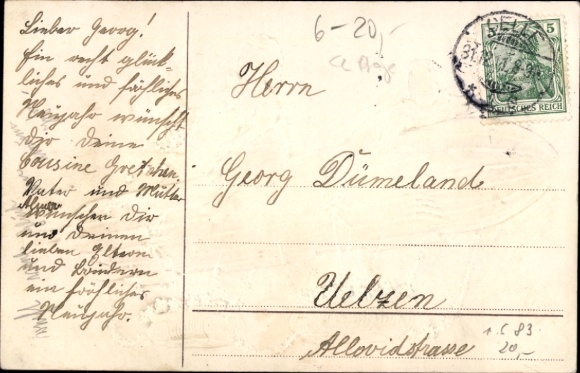 Lieber Georg!
Ein recht glück-
liches und fröhliches
Neujahr wünscht
dir deine
Cousine Gretchen.
Vater und Mutter
wünschen Dir
und Deinen
lieben Eltern
und Brüdern
ein fröhliches
Neujahr.
6-20,-
CELLE
5
DEUTSCHES REICH
Herrn
Georg Dümeland
Uelzen
Allovidstrasse
83
20,-